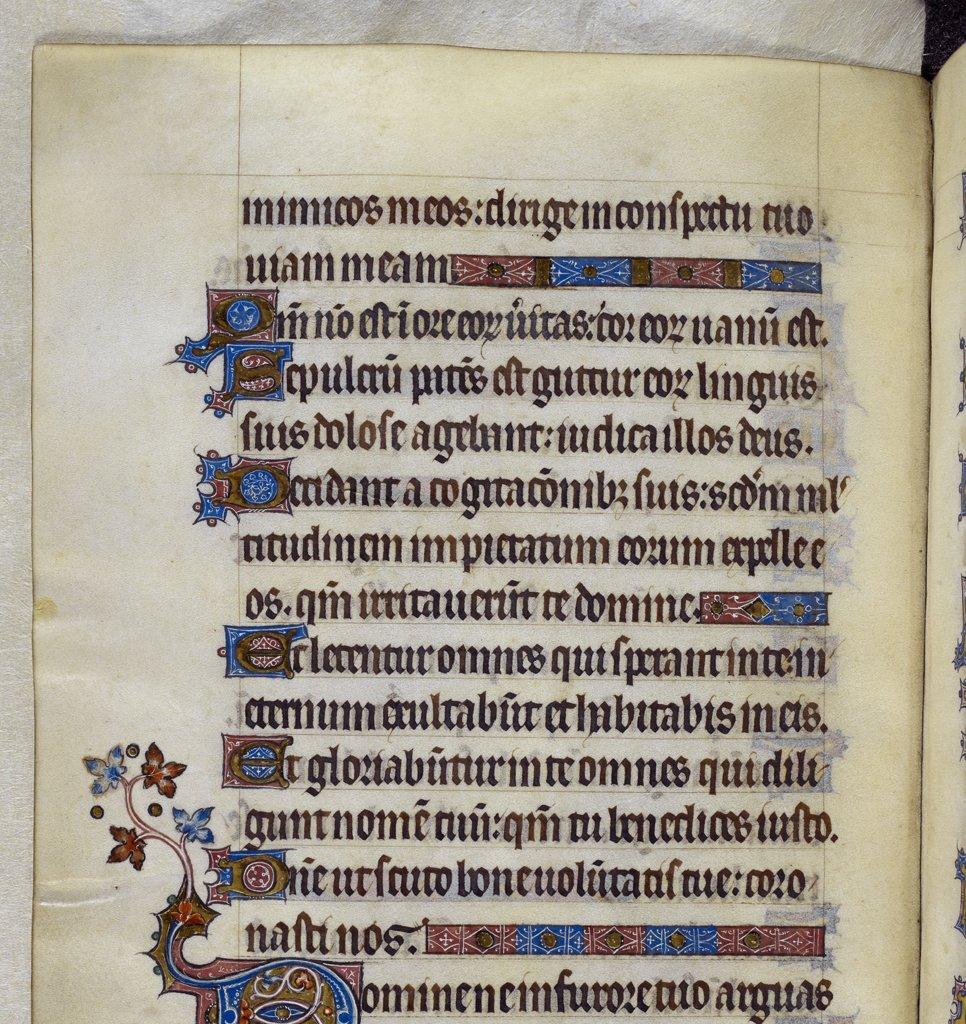 inimicos meos: dirige in conspectu tuo
uiam meam
Qm̄ nō est ī ore eoꝝ ūitas: cor eoꝝ uanū est.
Sepulcrū patēs est guttur eoꝝ linguis
suis dolose agebant: iudica illos deus.
Decidant a cogitacōnibꝫ suis: scdm̄ mul
titudinem impietatum eorum expelle e
os. qm̄ irritauerūt te domine.
Et letentur omnes qui sperant in te: in
eternum exultabūt et habitabis in eis.
Et gloriabūtur in te omnes qui dili
gunt nomē tuū: qm̄ tu benedices iusto.
Dn̄e ut scuto bone uolūtatis tue: coro
nasti nos.
Domine ne in furore tuo arguas